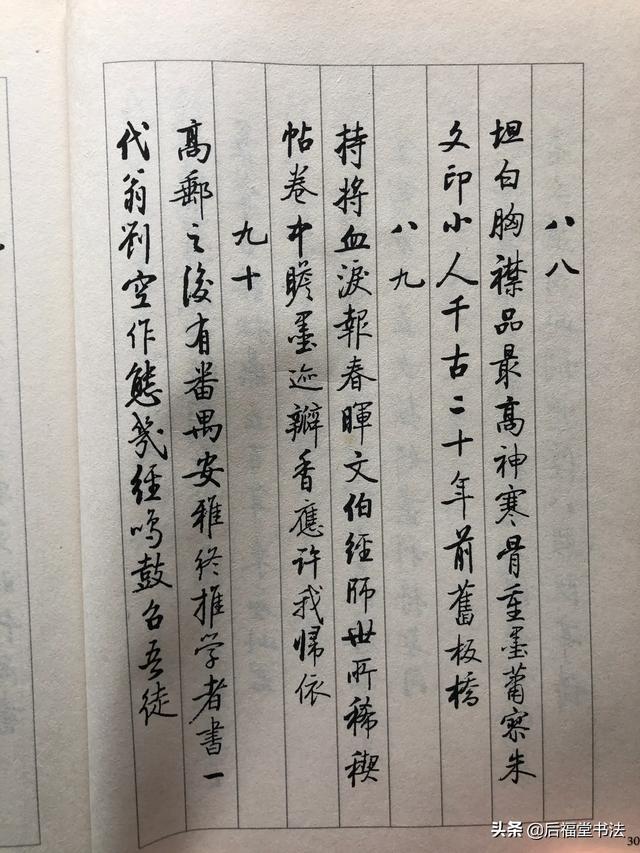 八八
坦白胸襟品最高神寒骨重墨蕭寥朱
文印小人千古二十年前舊板橋
八九
持將血淚報春暉文伯經師世所稀禊
帖卷中瞻墨迹瓣香應許我歸依
九十
高郵之後有番禺安雅終推学者書一
代翁劉空作態幾經鳴鼓召吾徒
30
头条 @后福堂书法